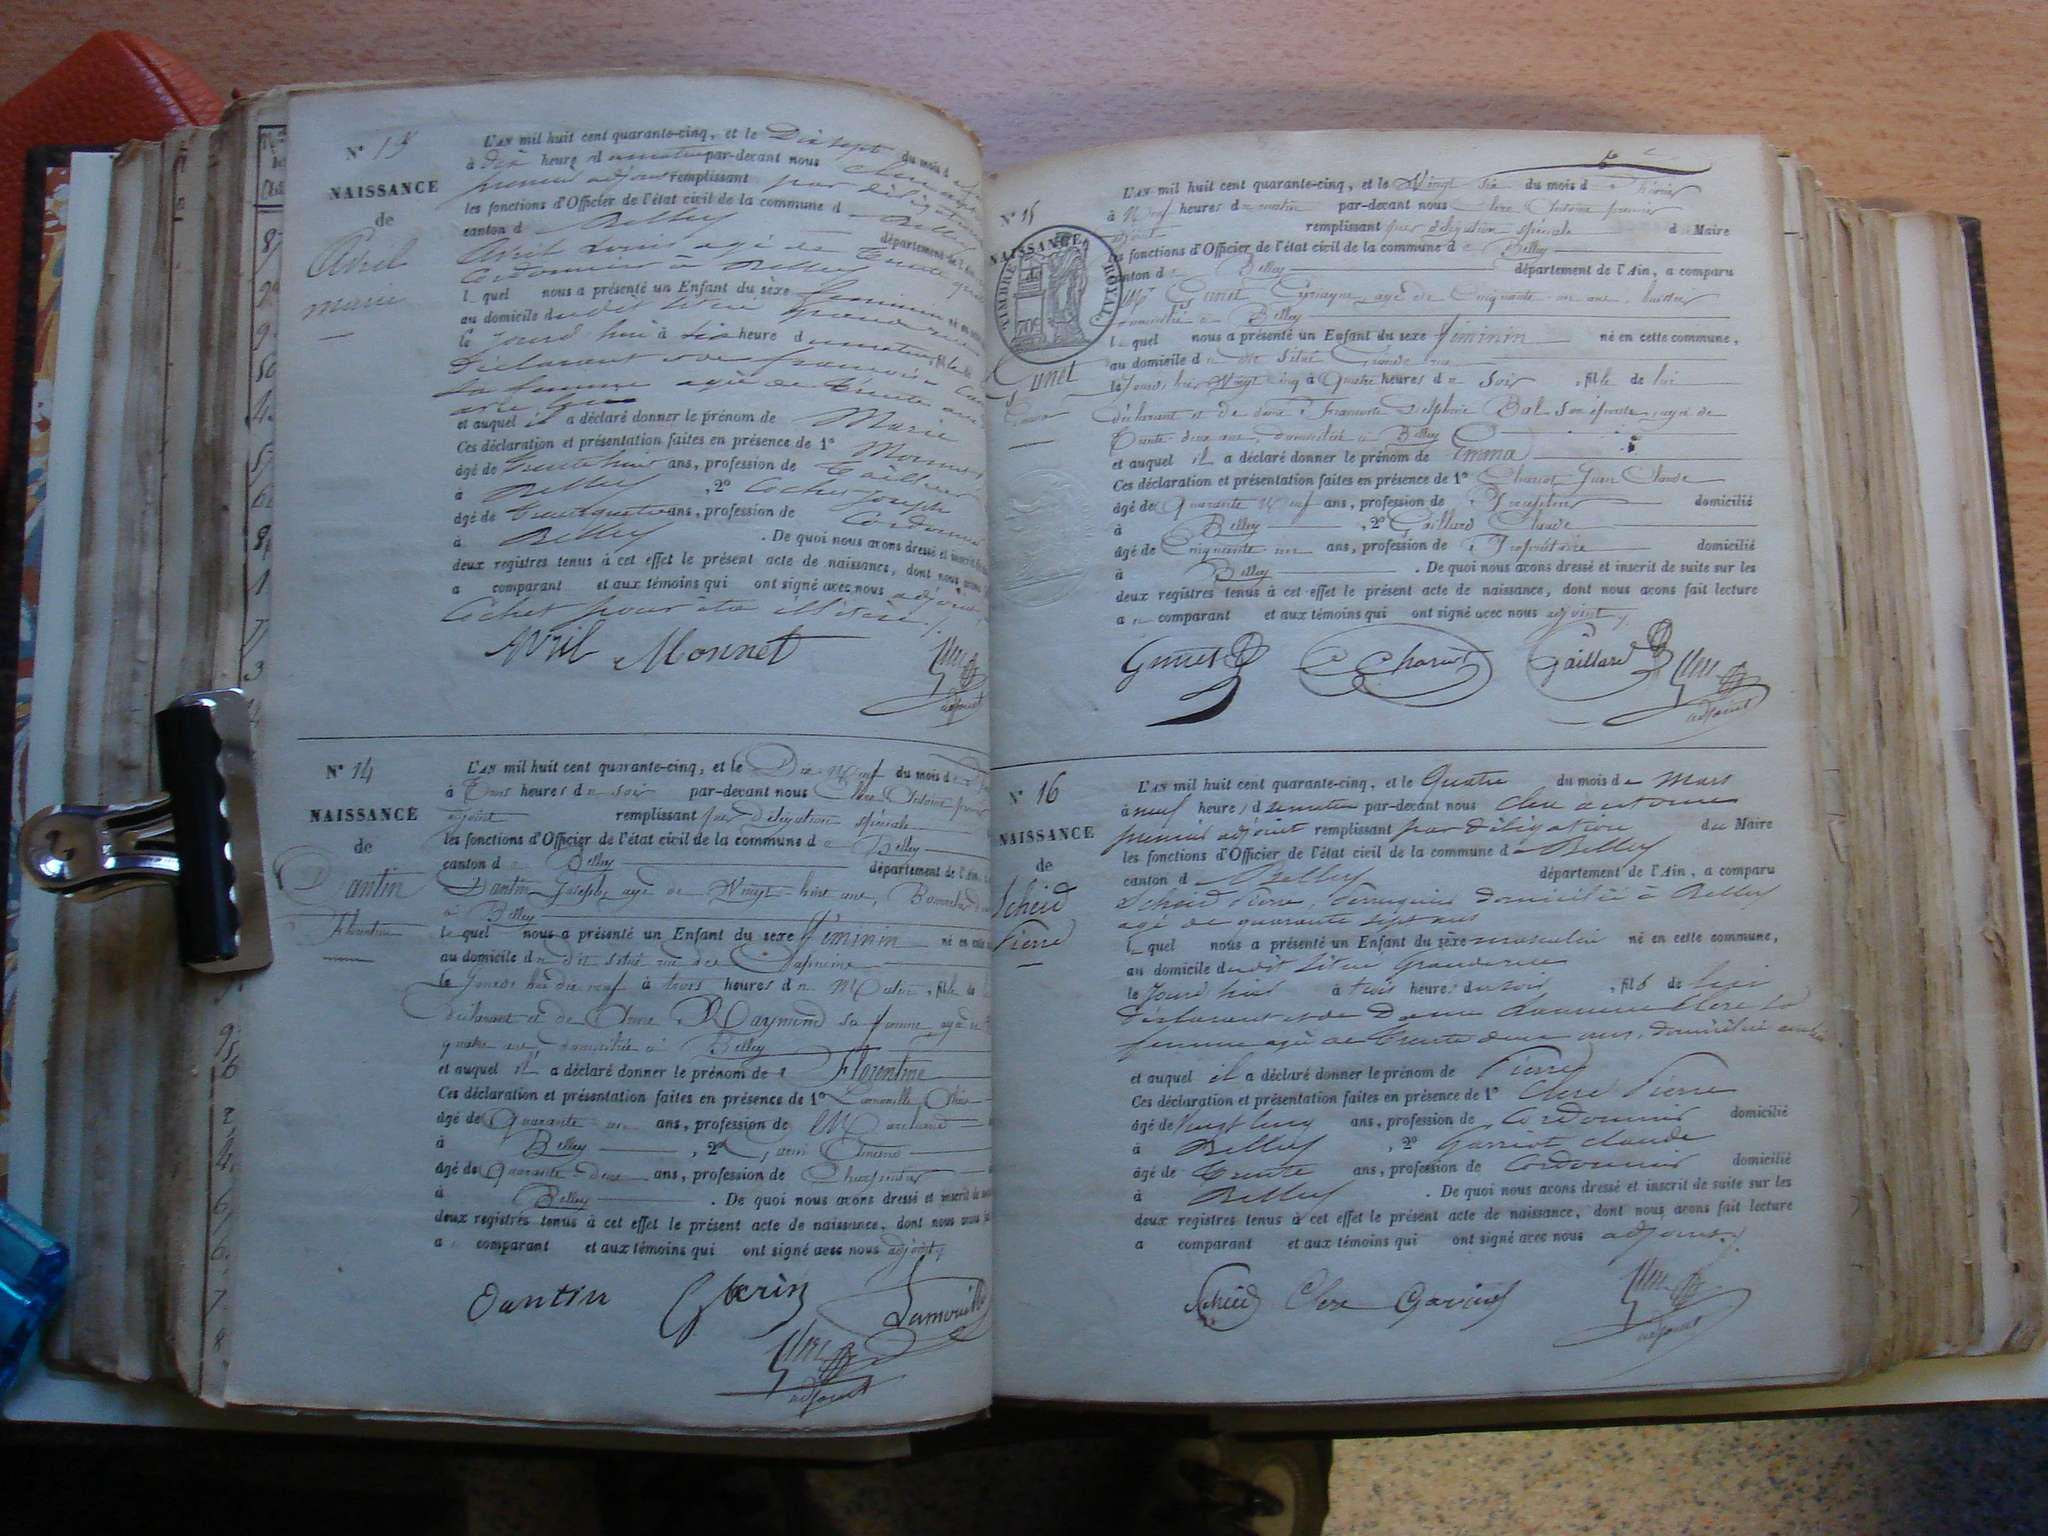 N° 13
NAISSANCE
de
Avril
marie
L'AN mil huit cent quarante-cinq, et le Dix sept du mois d
à dix heures d u matin par-devant nous Clerc
premier adjoint remplissant par délégation
les fonctions d'Officier de l'état civil de la commune d Belley
canton d Belley département de l'Ain
Avril Louis agé de trente
Cordonnier à Belley
l e quel nous a présenté un Enfant du sexe féminin né en
au domicile d u dit situé grande rue
le jourd'hui à six heures d u matin, fille de
déclarant et de françoise
sa femme agée de trente ans
et auquel il a déclaré donner le prénom de Marie
Ces déclaration et présentation faites en présence de 1° Monnet
âgé de trente huit ans, profession de tailleur
à Belley , 2° Cochet Joseph
âgé de ans, profession de Cordonnier
à Belley . De quoi nous avons dressé et inscrit
deux registres tenus à cet effet le présent acte de naissance, dont nous avons
a comparant et aux témoins qui ont signé avec nous adjoint
Cochet pour être illitéré
Avril Monnet
adjoint
N° 14
NAISSANCE
de
Dantin
Florentine
L'AN mil huit cent quarante-cinq, et le Dix Neuf du mois d
à Trois heures d u soir par-devant nous Clerc Antoine premier
adjoint remplissant par délégation spéciale
les fonctions d'Officier de l'état civil de la commune d e Belley
canton d e Belley département de l'Ain
Dantin Joseph, agé de Vingt-huit ans,
à Belley
le quel nous a présenté un Enfant du sexe féminin né en cette
au domicile d u dit situé rue des Capucins
le Jourd'hui dix neuf à trois heures d u Matin, fille de
déclarant et de Raymond sa femme agée de
quatre ans domiciliée à Belley
et auquel il a déclaré donner le prénom de Florentine
Ces déclaration et présentation faites en présence de 1° Lamouille
âgé de Quarante un ans, profession de Marchand
à Belley , 2°
âgé de Quarante deux ans, profession de Charpentier
à Belley . De quoi nous avons dressé et inscrit de suite
deux registres tenus à cet effet le présent acte de naissance, dont nous avons fait
a u comparant et aux témoins qui ont signé avec nous adjoint
Dantin Lamouille
adjoint
N° 15
NAISSANCE
de
TIMBRE ROYAL
Gunet
Emma
L'AN mil huit cent quarante-cinq, et le Vingt six du mois d e Février
à Neuf heures d u matin par-devant nous Clerc Antoine premier
adjoint remplissant par délégation spéciale d u Maire
les fonctions d'Officier de l'état civil de la commune d e Belley
canton d e Belley département de l'Ain, a comparu
Gunet agé de Cinquante un ans, huissier
domicilié à Belley
l e quel nous a présenté un Enfant du sexe féminin né en cette commune,
au domicile d u dit situé Grande rue
le Jourd'hui Vingt cinq à Quatre heures d u Soir , fille de lui
déclarant et de dame Françoise Delphine Bal son épouse, agée de
Trente-deux ans, domiciliée à Belley
et auquel il a déclaré donner le prénom de Emma
Ces déclaration et présentation faites en présence de 1° Chariot Jean Claude
âgé de Quarante Neuf ans, profession de Percepteur domicilié
à Belley , 2° Gaillard Claude
âgé de Cinquante un ans, profession de Propriétaire domicilié
à Belley . De quoi nous avons dressé et inscrit de suite sur les
deux registres tenus à cet effet le présent acte de naissance, dont nous avons fait lecture
a u comparant et aux témoins qui ont signé avec nous adjoint
Gunet Chariot Gaillard
adjoint
N° 16
NAISSANCE
de
Scheid
Pierre
L'AN mil huit cent quarante-cinq, et le Quatre du mois d e Mars
à neuf heures d u matin par-devant nous Clerc antoine
premier adjoint remplissant par délégation du Maire
les fonctions d'Officier de l'état civil de la commune d e Belley
canton d e Belley département de l'Ain, a comparu
Scheid Pierre, Perruquier domicilié à Belley
agé de quarante sept ans
l e quel nous a présenté un Enfant du sexe masculin né en cette commune,
au domicile d u dit situé Grande rue
le Jourd hier à trois heures du soir , fils de lui
déclarant et de Dame Clerc sa
femme agée de trente deux ans, domiciliée
et auquel il a déclaré donner le prénom de Pierre
Ces déclaration et présentation faites en présence de 1° Clerc Pierre
âgé de vingt cinq ans, profession de Cordonnier domicilié
à Belley , 2° Garriot claude
âgé de trente ans, profession de Cordonnier domicilié
à Belley . De quoi nous avons dressé et inscrit de suite sur les
deux registres tenus à cet effet le présent acte de naissance, dont nous avons fait lecture
a comparant et aux témoins qui ont signé avec nous adjoint
Scheid Clerc
adjoint